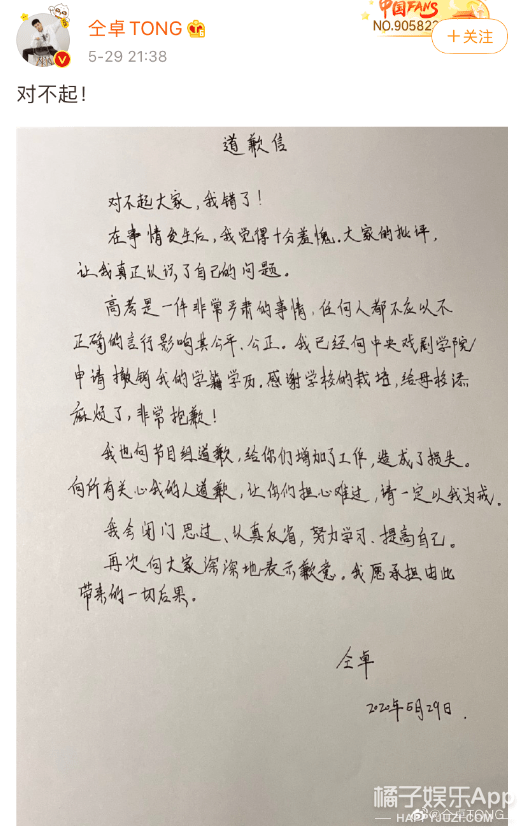 仝卓TONG
5-29 21:38
中国FANS
NO.905822
+关注
对不起！
道歉信
对不起大家，我错了！
在事情发生后，我觉得十分羞愧。大家的批评，
让我真正认识了自己的问题。
高考是一件非常严肃的事情，任何人都不应以不
正确的言行影响其公平、公正。我已经向中央戏剧学院
申请撤销我的学籍学历。感谢学校的栽培，给母校添
麻烦了，非常抱歉！
我也向节目组道歉，给你们增加了工作，造成了损失。
向所有关心我的人道歉，让你们担心难过，请一定以我为戒。
我会闭门思过、认真反省，努力学习、提高自己。
再次向大家深深地表示歉意。我愿承担由此
带来的一切后果。
仝卓
2020年5月29日.
橘子娱乐App
@仝卓TONG